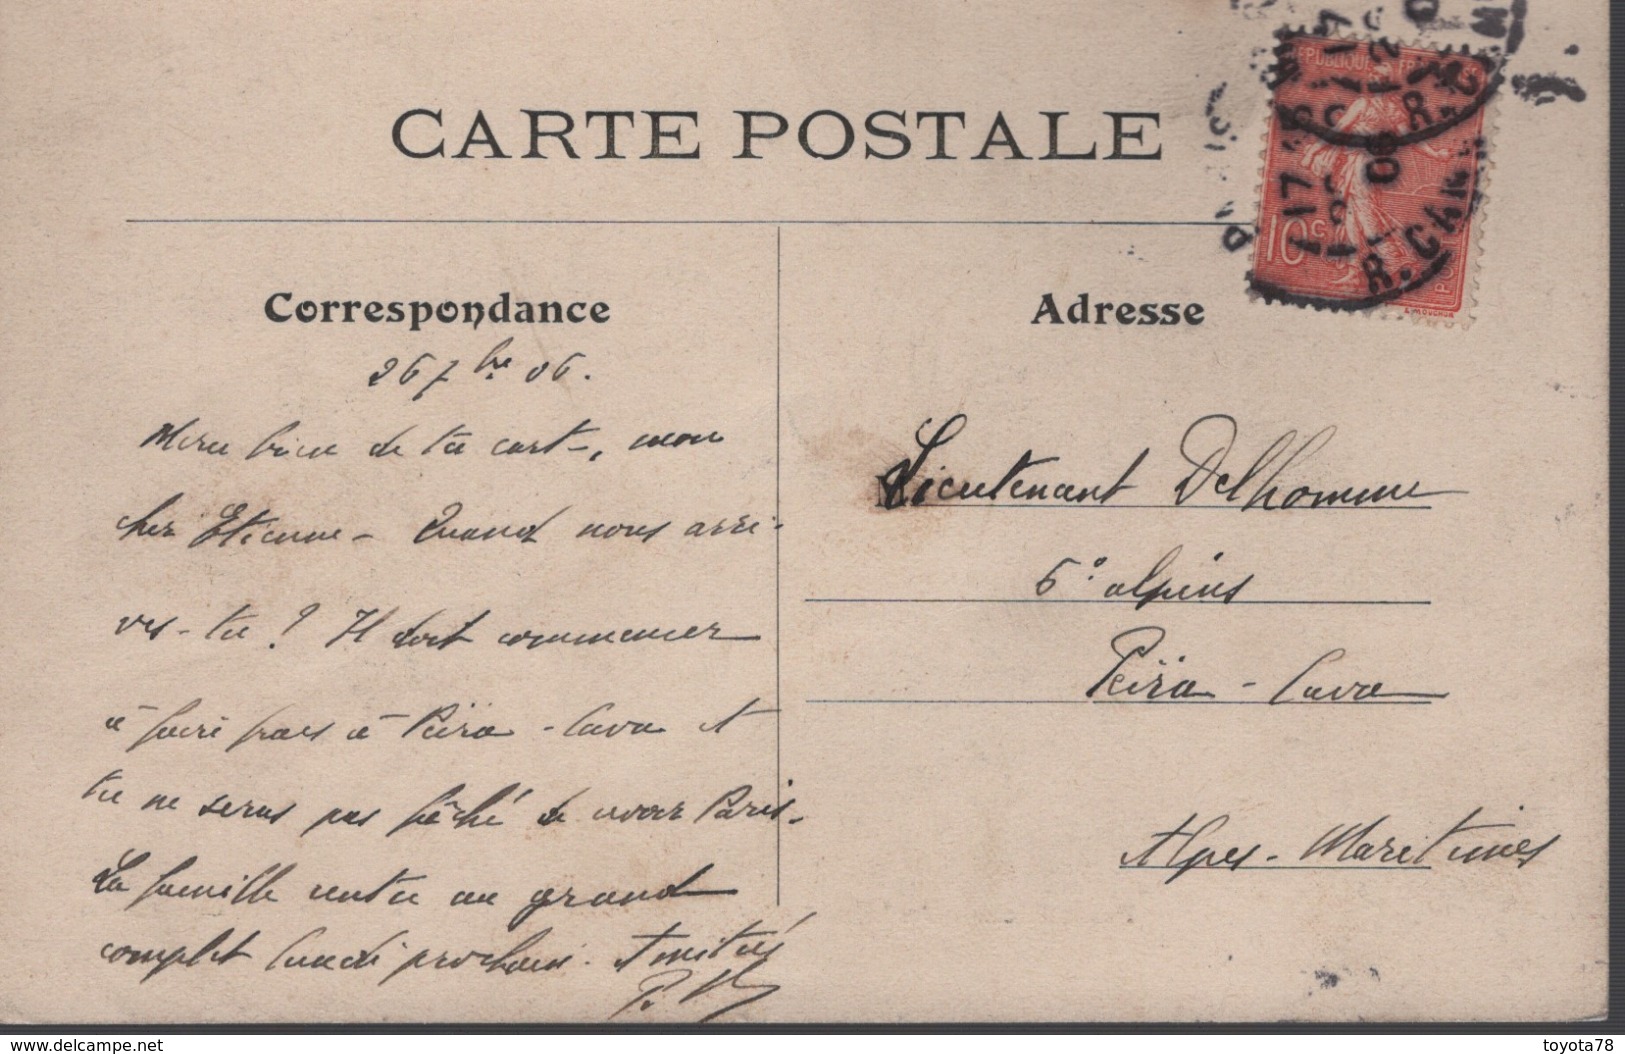 CARTE POSTALE
RÉPUBLIQUE FRANÇAISE
10c
Correspondance
26 7bre 06.
Merci bien de ta carte, mon
cher Etienne - Quand nous arri-
ves-tu ? Il doit commencer
à faire frais à Peïra-Cava et
tu ne seras pas fâché de revoir Paris.
La famille rentre au grand
complet lundi prochain. Amitiés
P.
Adresse
Lieutenant Delhomme
6° alpins
Peïra-Cava
Alpes-Maritimes
delcampe.net
toyota78